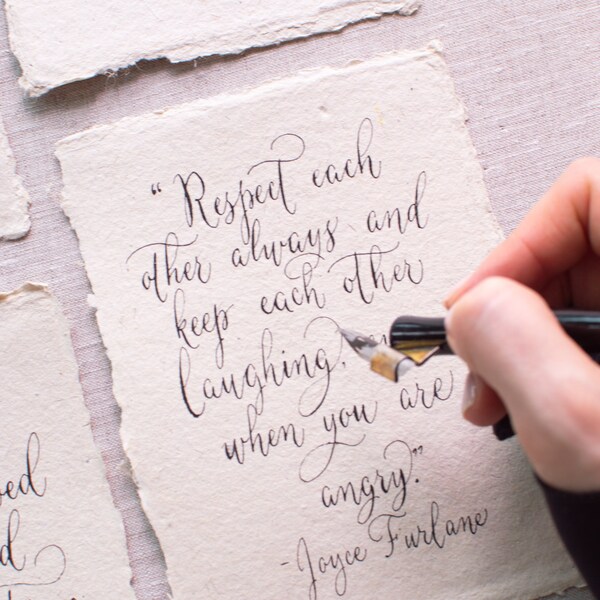 "Respect each
other always and
keep each other
laughing,
when you are
angry."
-Joyce Furlane